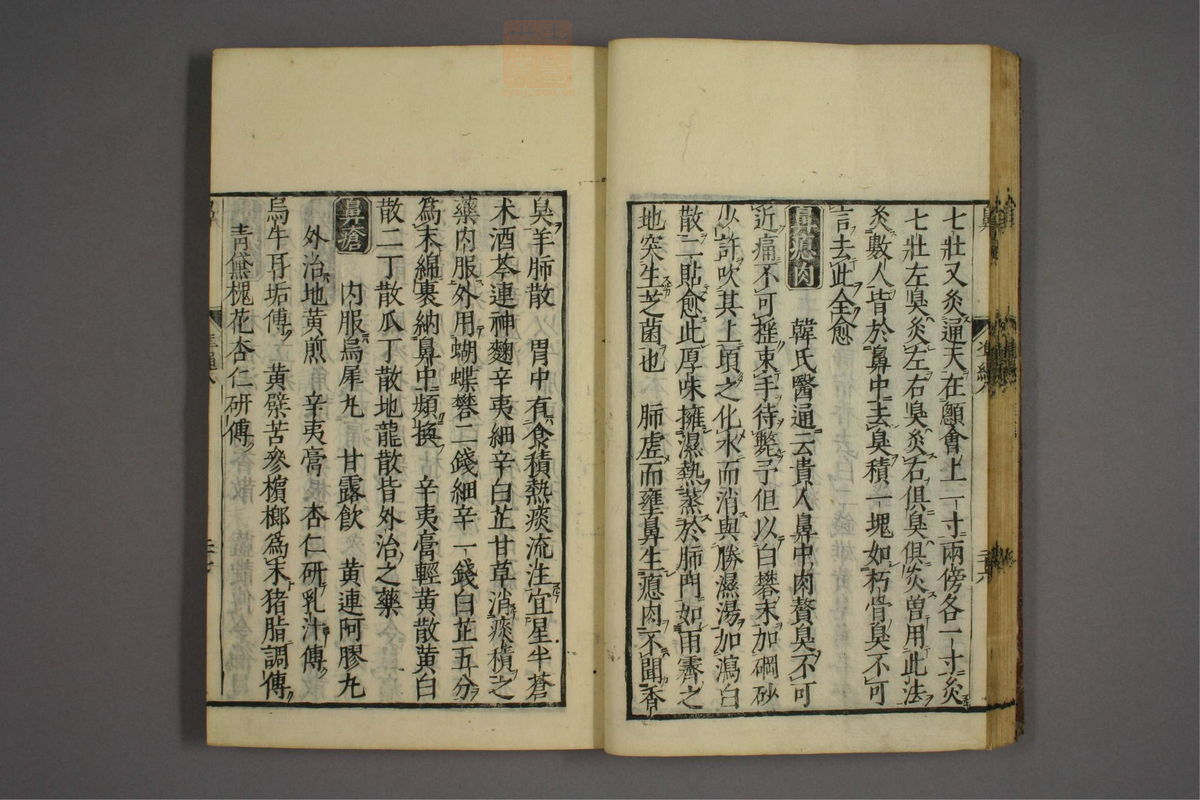 七壯又灸通天在顖會上一寸兩傍各一寸灸
七壯左臭灸左右臭灸右俱臭俱灸曽用此法
灸數人皆於鼻中去臭積一塊如朽骨臭不可
言去此全愈
鼻瘜肉　韓氏醫通云貴人鼻中肉贅臭不可
近痛不可搖束手待斃予但以白礬末加硇砂
少許吹其上頃之化水而消與勝濕湯加瀉白
散二貼愈此厚味擁濕熱蒸於肺門如雨霽之
地突生芝菌也　肺虛而壅鼻生瘜肉不聞香
臭羊肺散　胃中有食積熱痰流注宜星半蒼
朮酒芩連神麴辛夷細辛白芷甘草消痰積之
藥內服外用蝴蝶礬二錢細辛一錢白芷五分
爲末綿裹納鼻中頻換　辛夷膏輕黃散黃白
散二丁散瓜丁散地龍散皆外治之藥
鼻瘡　內服烏犀丸　甘露飲　黃連阿膠丸
外治地黃煎　辛夷膏　杏仁研乳汁傅
烏牛耳垢傅　黃檗苦參檳榔爲末猪脂調傅
青黛槐花杏仁研傅